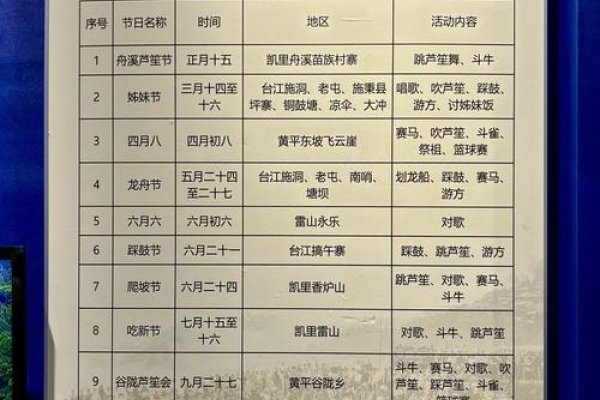 序号 节日名称 时间 地区 活动内容
1 舟溪芦笙节 正月十五 凯里舟溪苗族村寨 跳芦笙舞、斗牛
2 姊妹节 三月十四至十六 台江施洞、老屯、施秉县坪寨、铜鼓塘、凉伞、大冲 唱歌、吹芦笙、踩鼓、游方、讨姊妹饭
3 四月八 四月初八 黄平东坡飞云崖 赛马、吹芦笙、斗雀、祭祖、篮球赛
4 龙舟节 五月二十四至二十七 台江施洞、老屯、南哨、塘坝 划龙船、踩鼓、赛马、游方
5 六月六 六月初六 雷山永乐 对歌
6 踩鼓节 六月二十一 台江搞午寨 踩鼓、跳芦笙、游方
7 爬坡节 六月二十四 凯里香炉山 跳芦笙、对歌、赛马、斗牛
8 吃新节 七月十五至十六 凯里雷山 对歌、斗牛、跳芦笙
9 谷陇芦笙会 九月二十七 黄平谷陇乡 斗牛、赛马、对歌、吹芦笙、踩芦笙、斗雀、